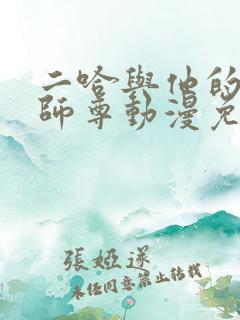 二哈與他的
師尊動漫免
張婭遂
未經同意禁止轉載